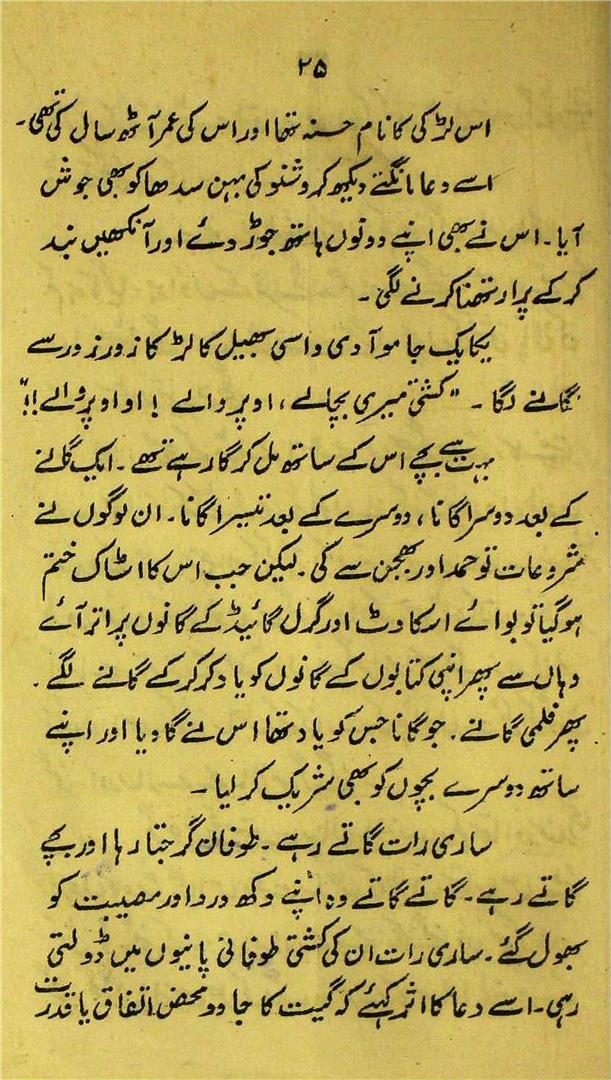 ۲۵
اس لڑکی کا نام حسنہ تھا اور اس کی عمر آٹھ سال کی تھی۔
اسے دعا مانگتے دیکھ کر وشنو کی بہن سدھا کو بھی جوش
آیا۔ اس نے بھی اپنے دونوں ہاتھ جوڑ دئے اور آنکھیں بند
کر کے پرارتھنا کرنے لگی۔
یکایک جاموآدی واسی بھیل کا لڑکا زور زور سے
گانے لگا۔ "کشتی میری بچالے، اوپر والے! او اوپر والے!!"
بہت سے بچے اس کے ساتھ مل کر گا رہے تھے۔ ایک گانے
کے بعد دوسرا گانا، دوسرے کے بعد تیسرا گانا۔ ان لوگوں نے
شروعات تو حمد اور بھجن سے کی۔ لیکن جب اس کا اسٹاک ختم
ہو گیا تو بوائے اسکاوٹ اور گرل گائیڈ کے گانوں پر اتر آئے
وہاں سے پھر اپنی کتابوں کے گانوں کو یاد کر کر کے گانے لگے۔
پھر فلمی گانے۔ جو گانا جس کو یاد تھا اس نے گا دیا اور اپنے
ساتھ دوسرے بچوں کو بھی شریک کر لیا۔
ساری رات گاتے رہے۔ طوفان گرجتا رہا اور بچے
گاتے رہے۔ گاتے گاتے وہ اپنے دکھ درد اور مصیبت کو
بھول گئے۔ ساری رات ان کی کشتی طوفانی پانیوں میں ڈولتی
رہی۔ اسے دعا کا اثر کہئے کہ گیت کا جادو محض اتفاق یا قدرت